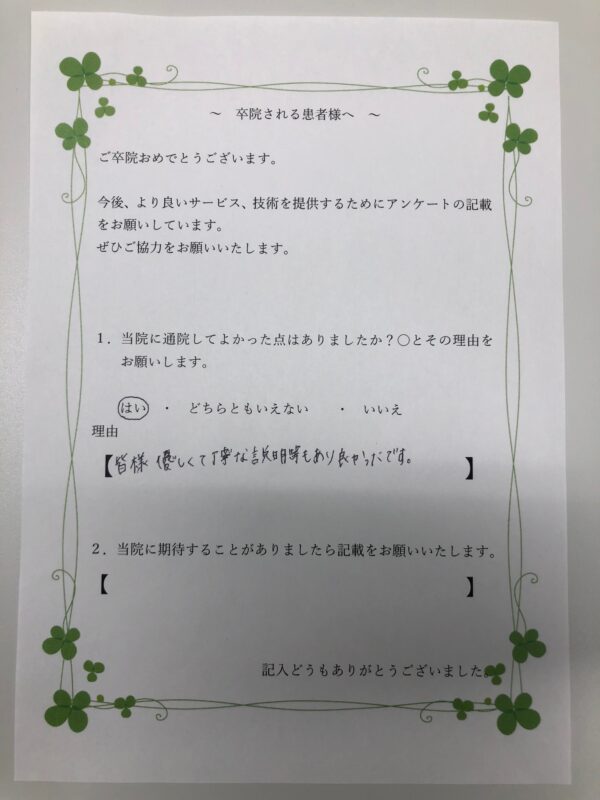 ～ 卒院される患者様へ ～
ご卒院おめでとうございます。
今後、より良いサービス、技術を提供するためにアンケートの記載
をお願いしています。
ぜひご協力をお願いいたします。
1．当院に通院してよかった点はありましたか？○とその理由を
お願いします。
はい ・ どちらともいえない ・ いいえ
理由
【皆様 優しくて丁寧な説明等もあり良かったです。 】
2．当院に期待することがありましたら記載をお願いいたします。
【 】
記入どうもありがとうございました。